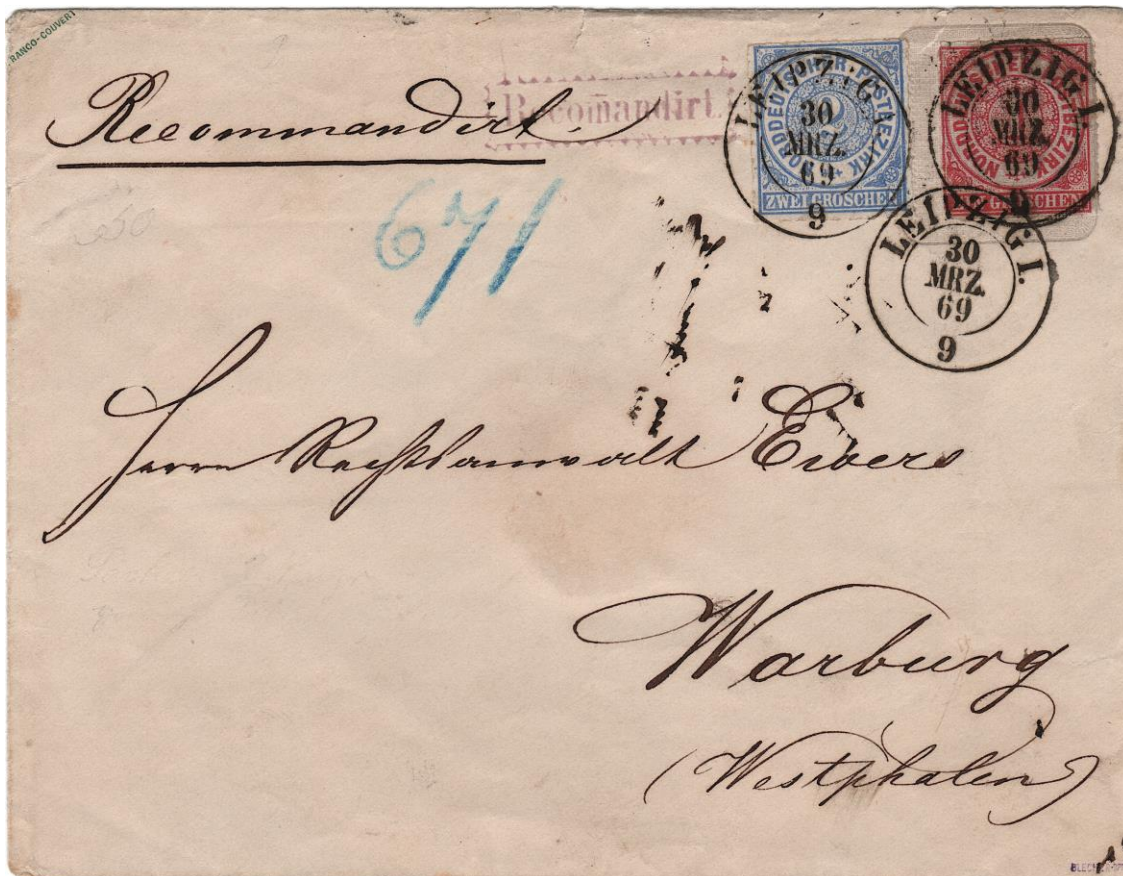 RANCO-COUVERT
Recommandirt.
Recom̄andirt.
671
NORDDEUTSCHER POSTBEZIRK
ZWEI GROSCHEN
LEIPZIG I.
30
MRZ.
69
9
NORDDEUTSCHER POSTBEZIRK
GROSCHEN
LEIPZIG I.
30
MRZ.
69
9
LEIPZIG I.
30
MRZ.
69
9
Herrn Rechtsanwalt Evers
Warburg
(Westphalen)